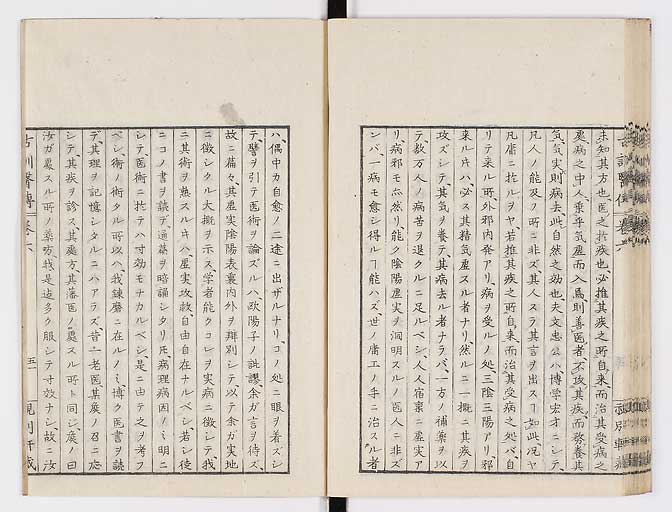 未知其方也医之於疾也必推其疾之所自来而治其受病之
処病之中人乗乎気虚而入焉則善医者不攻其疾而務養其
気気実則病去此自然之効也夫文忠公ハ博学宏才ニシテ
凡人ノ能及ノ所ニ非ズ其人スラ其言ヲ出スヿ如此況ヤ
凡庸ニ於ルヲヤ若推其疾之所自来而治其受病之処バ自
リテ来ル所外邪内発アリ病ヲ受ルノ処三陰三陽アリ邪
来ル片ハ必ス其精気虚スル者ナリ然ルニ一概ニ其疾ヲ
攻ズシテ其気ヲ養テ其病去ル者ナラバ一方ノ補薬ヲ以
テ数万人ノ病苦ヲ退クルニ足ルベシ人人宿稟ニ虚実ア
リ病邪モ亦然リ能ク陰陽虚実ヲ洞明スルノ医人ニ非ズ
ンバ一病モ愈シ得ルヿ能ハズ世ノ庸工ノ手ニ治スル者
ハ偶中カ自愈ノ二途ニ出ザルナリコノ処ニ眼ヲ着ズシ
テ譬ヲ引テ医術ヲ論ズルハ欧陽子ノ訛謬余ガ言ヲ待ズ
故ニ篇々其虚実陰陽表裏内外ヲ辨別シテ以テ余ガ実地
ニ徴シクル大概ヲ示ス学者能クコレヲ実病ニ徴シテ我
ニ其術ヲ熟スル片ハ虚実攻救自由自在ナルベシ若シ徒
ニコノ書ヲ読テ通篇ヲ暗誦シタリ𪜈病理病因ノミ明ニ
シテ医術ニ於テハ寸効モナカルベシ是ニ由テ之ヲ考フ
ベシ術ノ術タル所以ハ我錬磨ニ在ルノミ博ク医書ヲ読
デ其理ヲ記憶シタルニハアラズ昔一老医某侯ノ召ニ応
シテ其疾ヲ診ス其処方其藩医ノ処スル所ト同シ侯ノ曰
汝ガ処スル所ノ薬方我是迄多ク服シテ寸効ナシ故ニ汝
古訓醫傳 巻六
五一